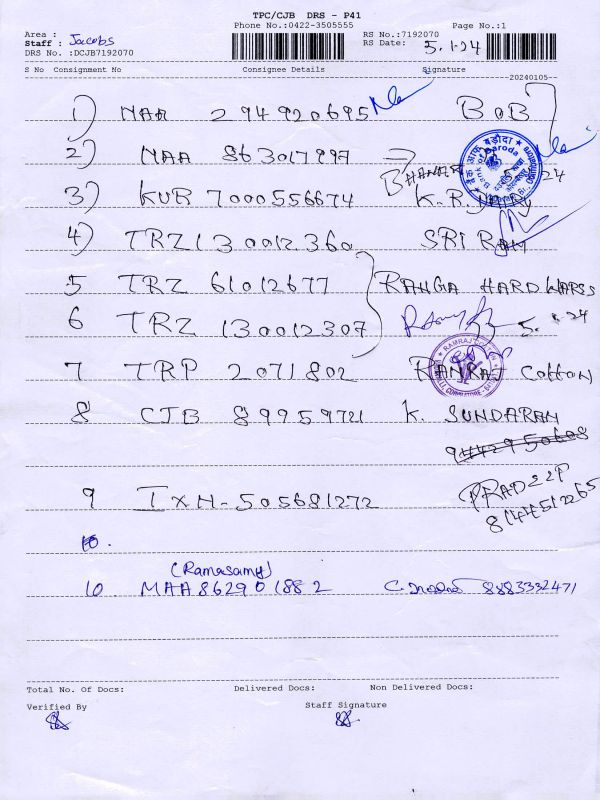 TPC/CJB DRS - P41
Phone No.:0422-3505555
Page No.:1
Area :
Staff : Jacobs
DRS No. :DCJB7192070
RS No.:7192070
RS Date: 5.1.24
S No Consignment No Consignee Details Signature
20240105
1) NAA 294920695 BOB
2) NAA 863017997
3) KUR 7000556674 K.R
4) TRZ 130012360 SRI RAM
5 TRZ 61012677 RANGA HARDWARSS
6 TRZ 130012307 5. 1.24
7 TRP 2071802 RAMRAJ Cotton
8 CJB 89959721 K. SUNDARAM
9 IXM-505681272 PRAD22P
8144512265
10.
(Ramasamy)
10. MAA862901882 8883332471
Total No. Of Docs: Delivered Docs: Non Delivered Docs:
Verified By Staff Signature